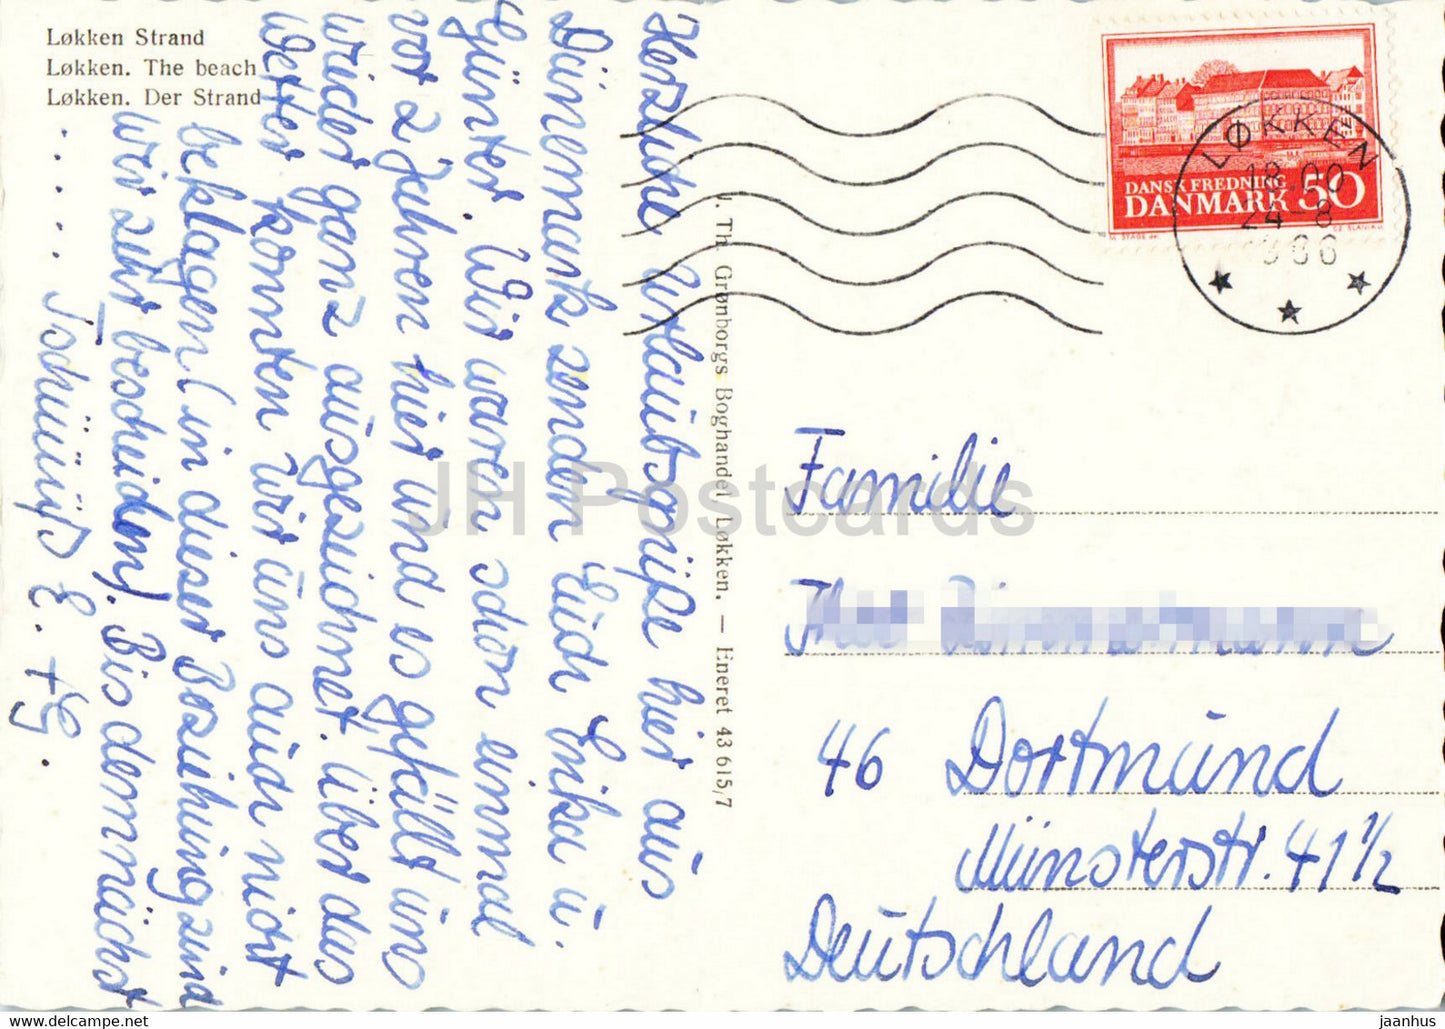 Løkken Strand
Løkken. The beach
Løkken. Der Strand
Herzliche Urlaubsgrüße hier aus
Dänemark senden Euch Erika u.
Günter. Wir waren schon einmal
vor 2 Jahren hier und es gefällt uns
wieder ganz ausgezeichnet. Über das
Wetter konnten wir uns auch nicht
beklagen (in dieser Beziehung sind
wir sehr bescheiden). Bis demnächst
..... Tschüüüß E. + G.
J. Th. Grønborgs Boghandel Løkken. — Eneret 43 615/7
DANSK FREDNING
DANMARK 50
LØKKEN
18.00
24-8
1966
Familie
46 Dortmund
Münsterstr. 41 1/2
Deutschland
JH Postcards
www.delcampe.net
jaanhus